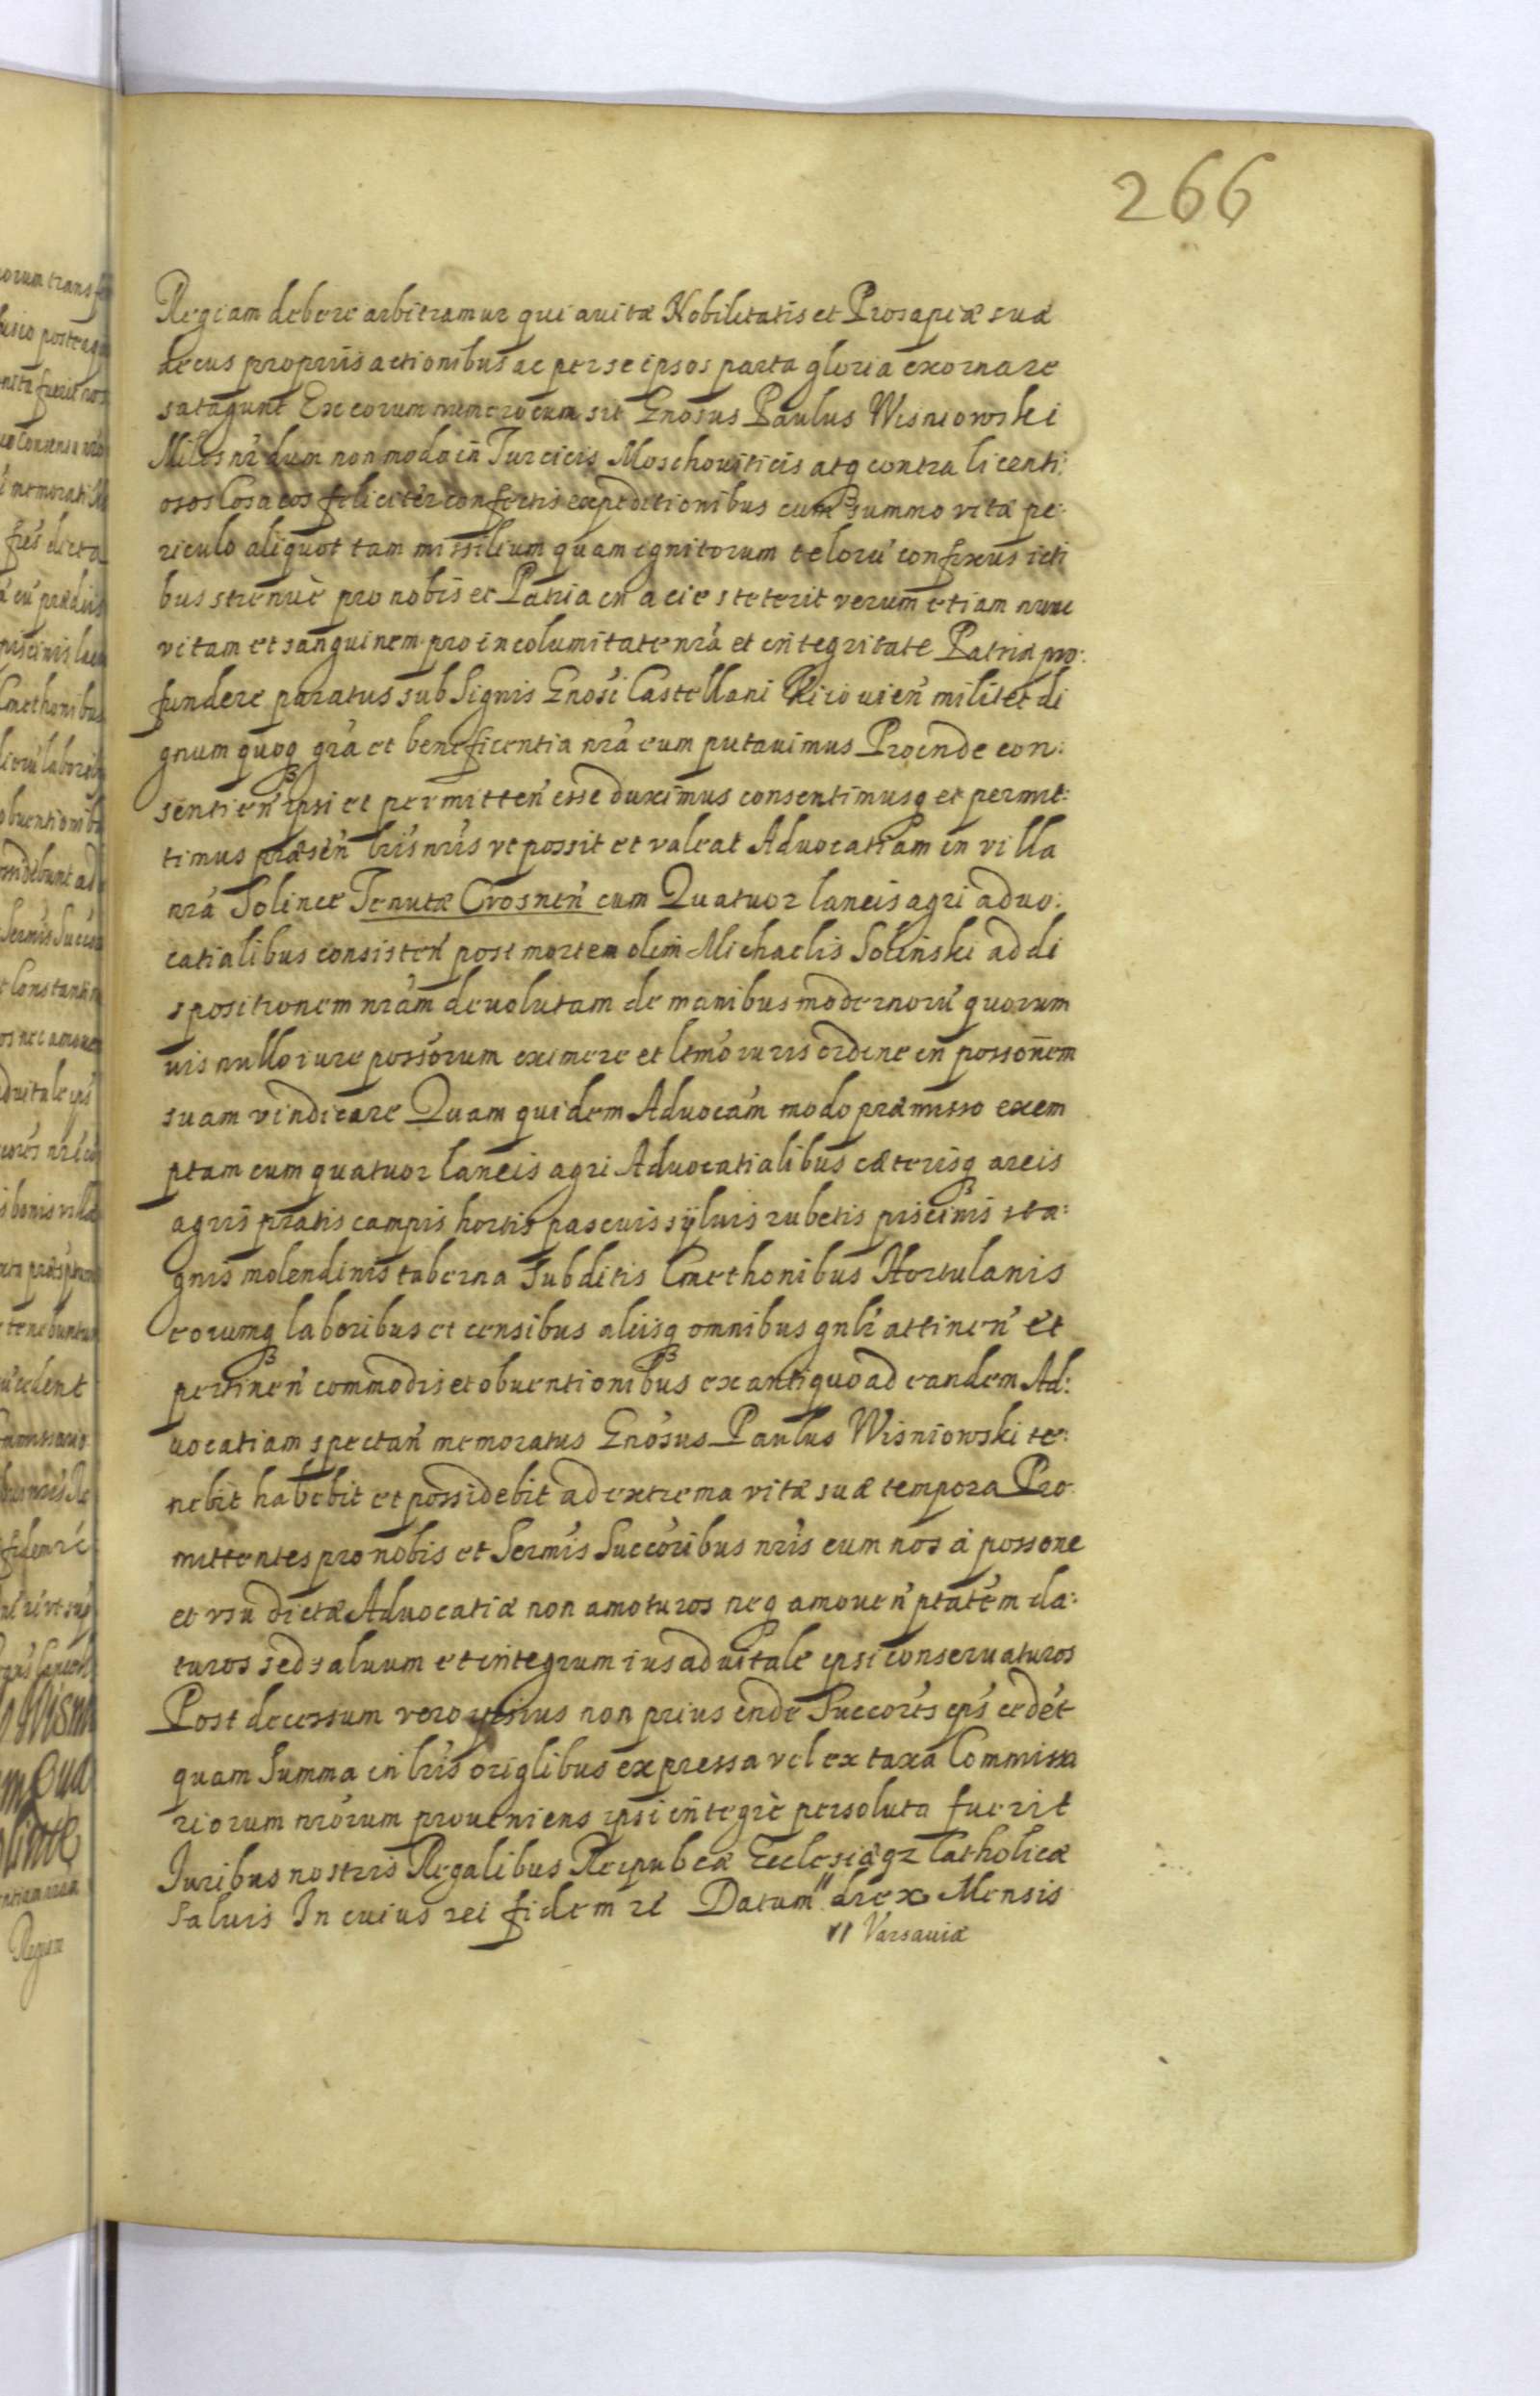 266
Regiam debere arbitramur qui auitæ Nobilitatis et Prosapiæ suæ
decus proprijs actionibus ac per se ipsos parta gloria exornare
satagunt Ex eorum numero cum sit Gnosus Paulus Wisniowski
Miles nr dum non modo in Turcicis Moschouiticis atq contra licenti:
osos Cosacos feliciter confectis expeditionibus cum summo vitæ pe:
riculo aliquot tam missilium quam ignitorum teloru confixus icti
bus strenuè pro nobis et Patria in acie steterit verum etiam nunc
vitam et sanguinem pro incolumitate nra et integritate Patriæ pro:
fundere paratus sub Signis Gnosi Castellani Kiiouien militet di
gnum quoq gra et beneficentia nra eum putauimus Proinde con:
sentien ipsi et permitten esse duximus consentimusq et permit:
timus præsen lris nris vt possit et valeat Aduocatiam in villa
nra Solince Tenutæ Crosnen cum Quatuor laneis agri aduo:
catialibus consisten post mortem olim Michaelis Solinski ad di
spositionem nram deuolutam de manibus modernoru quorum
uis nullo iure possorum eximere et lrmo iuris ordine in possonem
suam vindicare Quam quidem Aduocam modo præmisso exem
ptam cum quatuor laneis agri Aduocatialibus cæterisq areis
agris pratis campis hortis pascuis syluis rubetis piscinis sta:
gnis molendinis taberna Subditis Cmethonibus Hortulanis
eorumq laboribus et censibus alijsq omnibus gnlr attinen et
pertinen commodis et obuentionibus ex antiquo ad eandem Ad:
uocatiam spectan memoratus Gnosus Paulus Wisniowski te:
nebit habebit et possidebit ad extrema vitæ suæ tempora Pro
mittentes pro nobis et Sermis Succoribus nris eum nos à possone
et vsu dictæ Aduocatiæ non amoturos neq amouen ptatem da:
turos sed saluum et integrum ius aduitale ipsi conseruaturos
Post decessum vero ipsius non prius inde Succores ips cedet
quam Summa in lris origlibus expressa vel ex taxa Commissa
riorum nrorum proueniens ipsi integrè persoluta fuerit
Iuribus nostris Regalibus Reipubcæ Ecclesiæqz Catholicæ
saluis In cuius rei fidem zc Datum" die x Mensis
" Varsauiæ